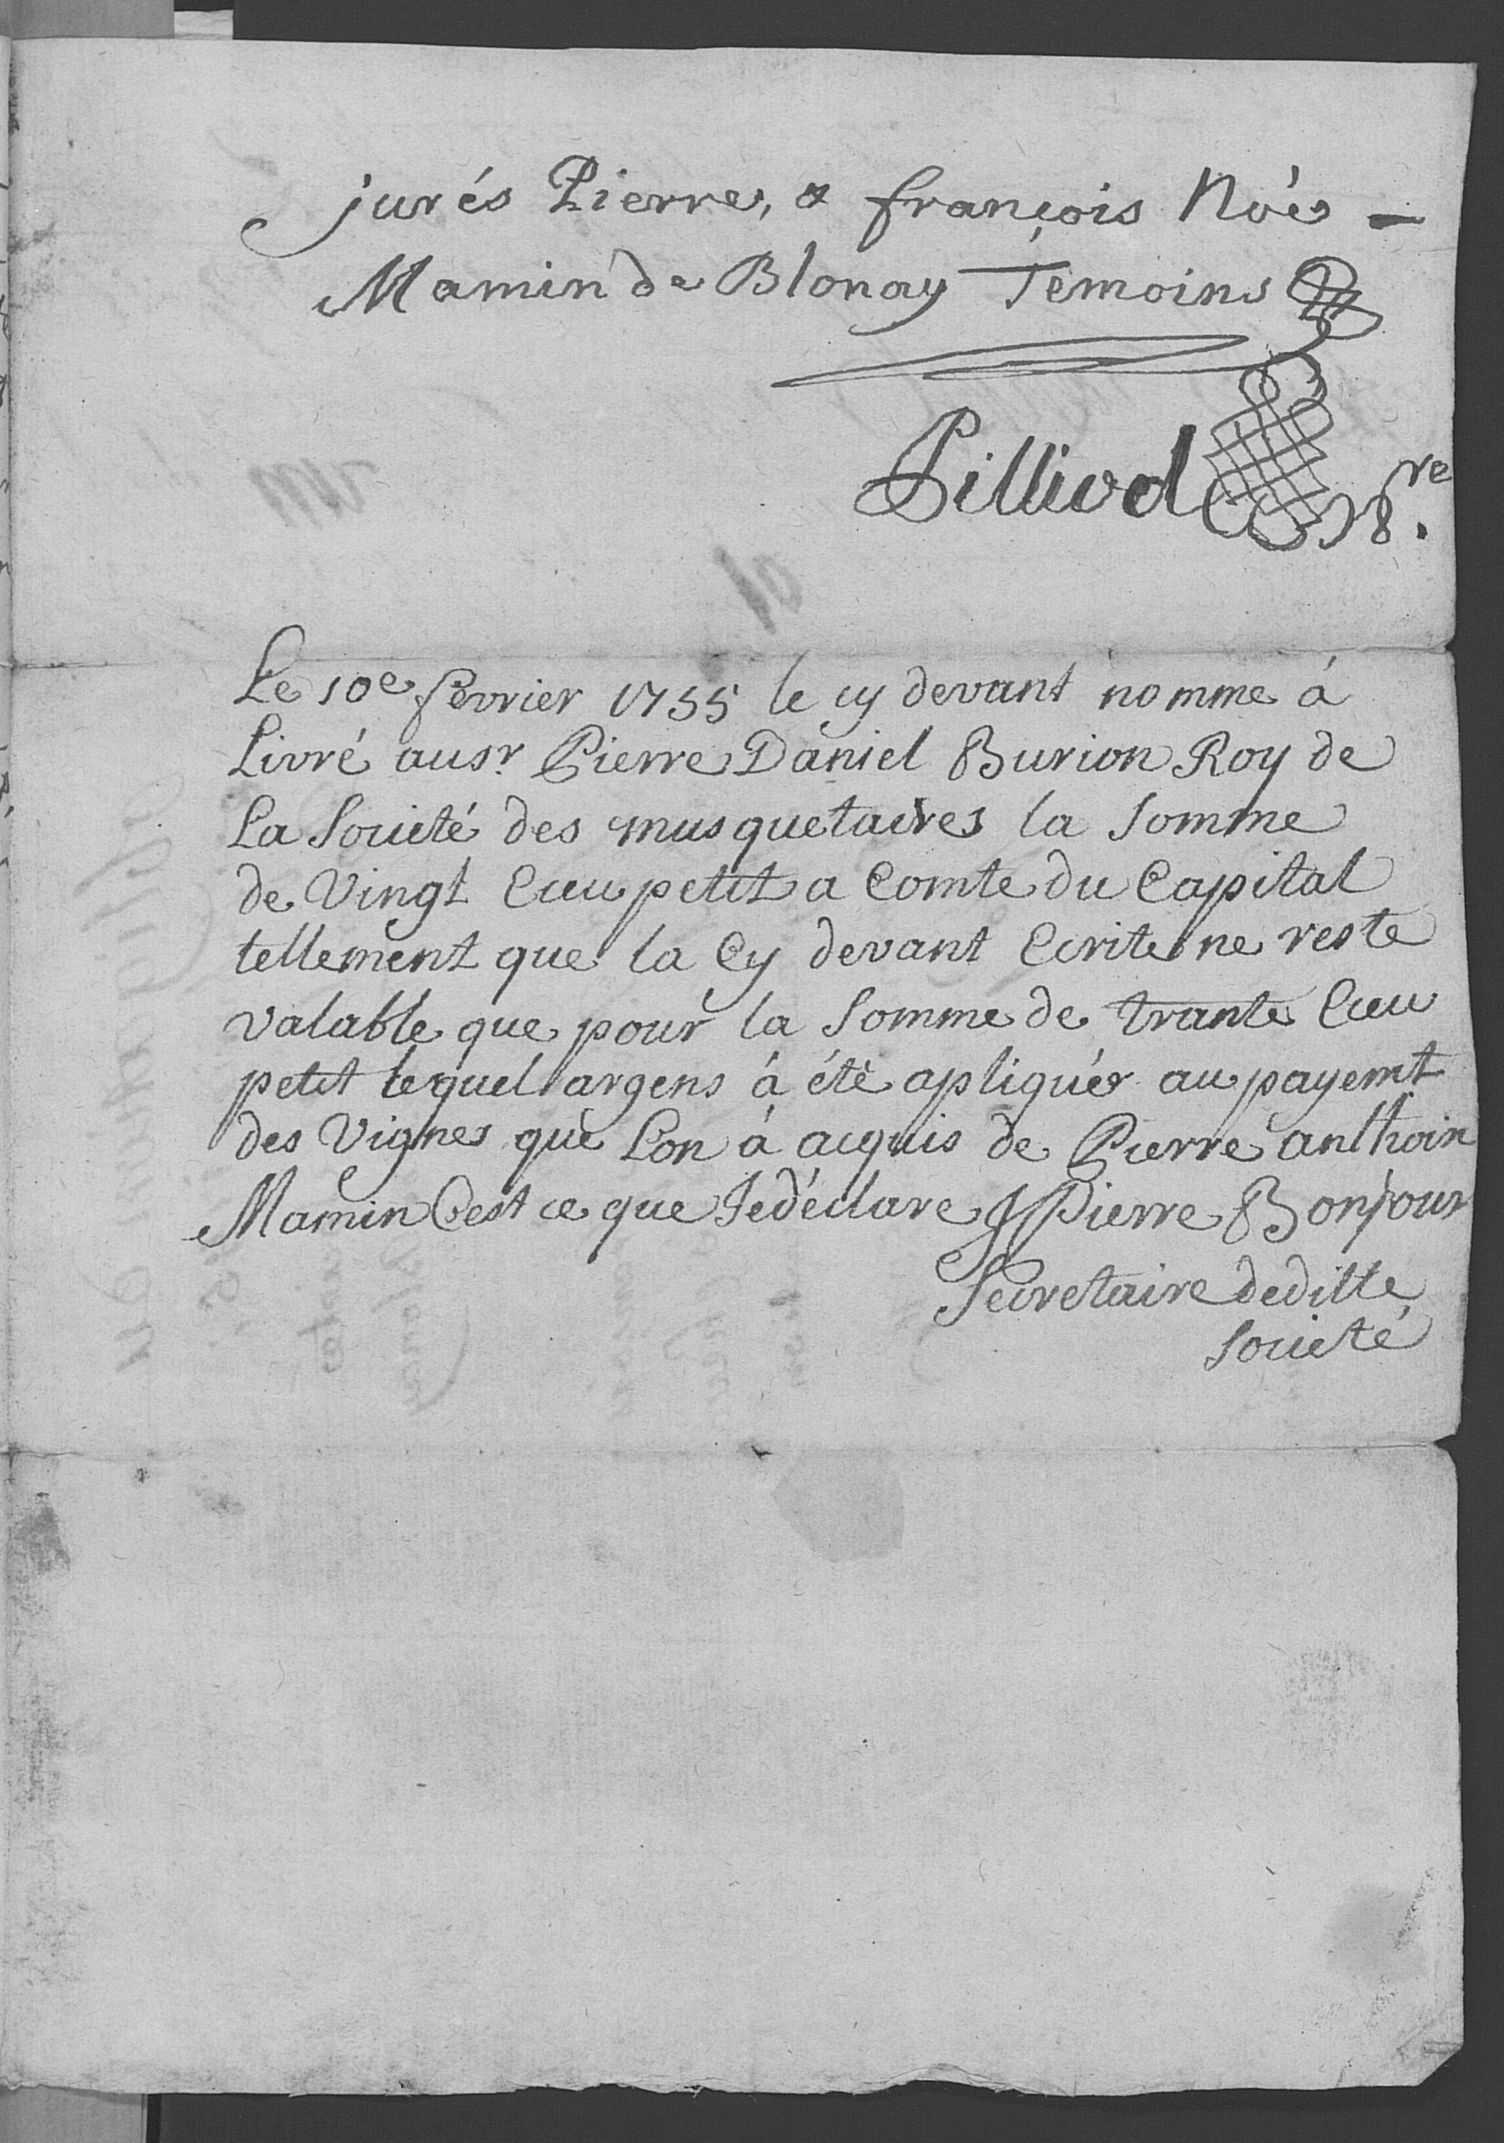 jurés Pierre, & françois Noé –
Mamin de Blonay Temoins
Pilliod Nore.
Le 10e fevrier 1755 le cy devant nomme á
Livré ausr. Pierre Daniel Burion Roy de
La Societé des musquetaires la Somme
de Vingt Ecu petit a Comte du Capital
tellement que la Cy devant Ecrite ne reste
valable que pour la Somme de trante Ecu
petit lequel argens á été apliquér au payemt
des Vignes que Lon á acquis de Pierre anthoin
Mamin C'est ce que Je déclare Pierre Bonjour
Secretaire de ditte
Societé